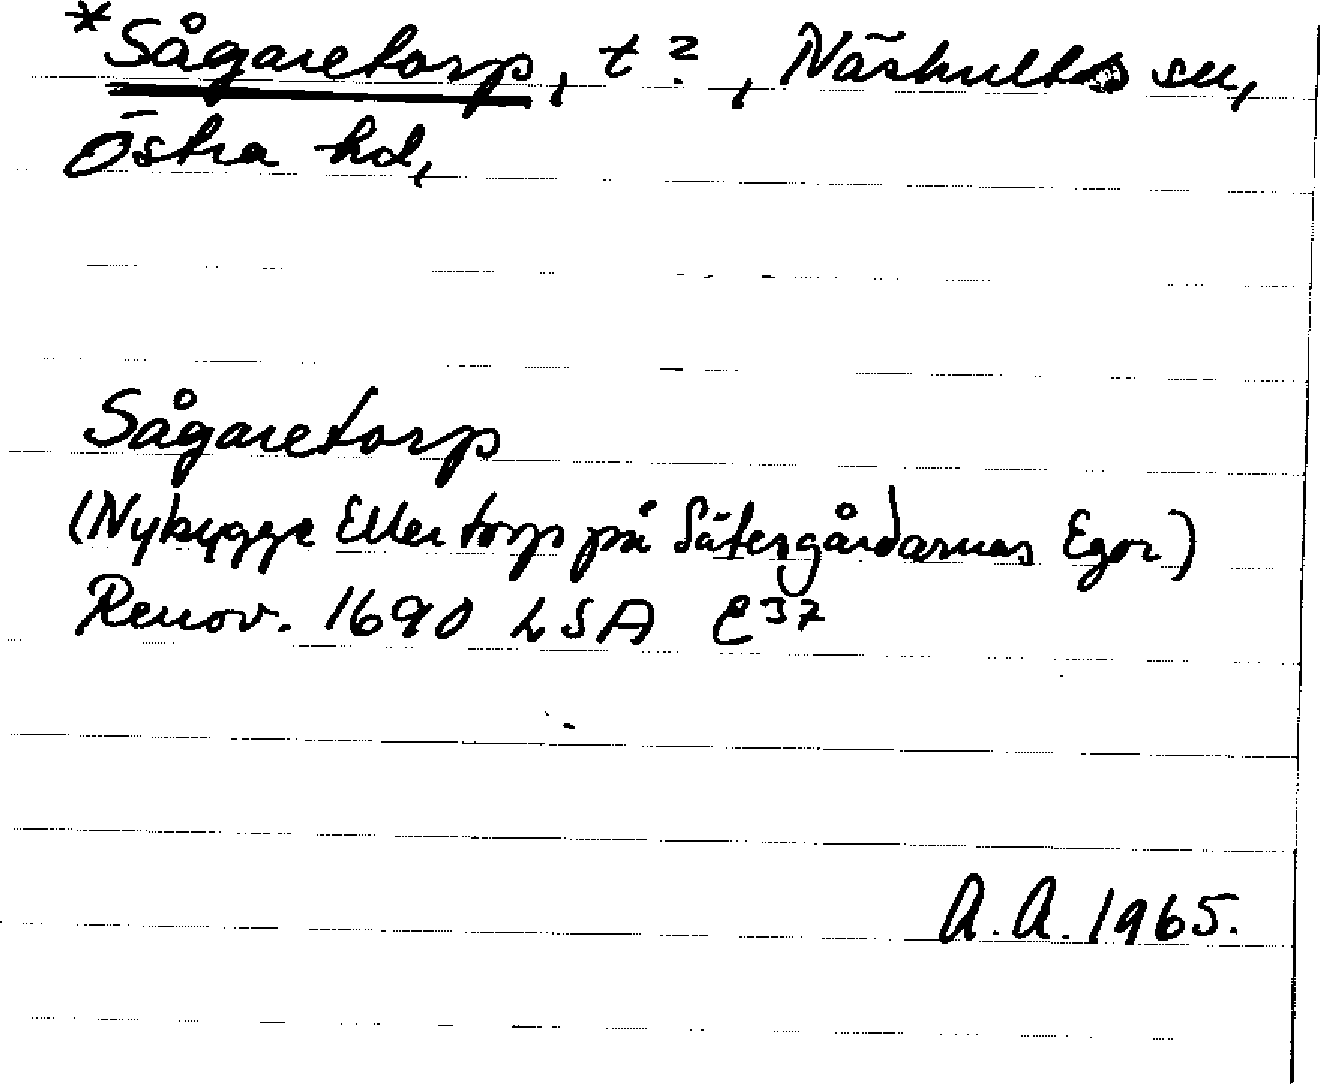 *Sågaretorp, t?, Näshults sn,
Östra hd,
Sågaretorp
(Nybygge Eller torp på Sätergårdarnas Egor)
Renov. 1690 LSA E37
A.A. 1965.